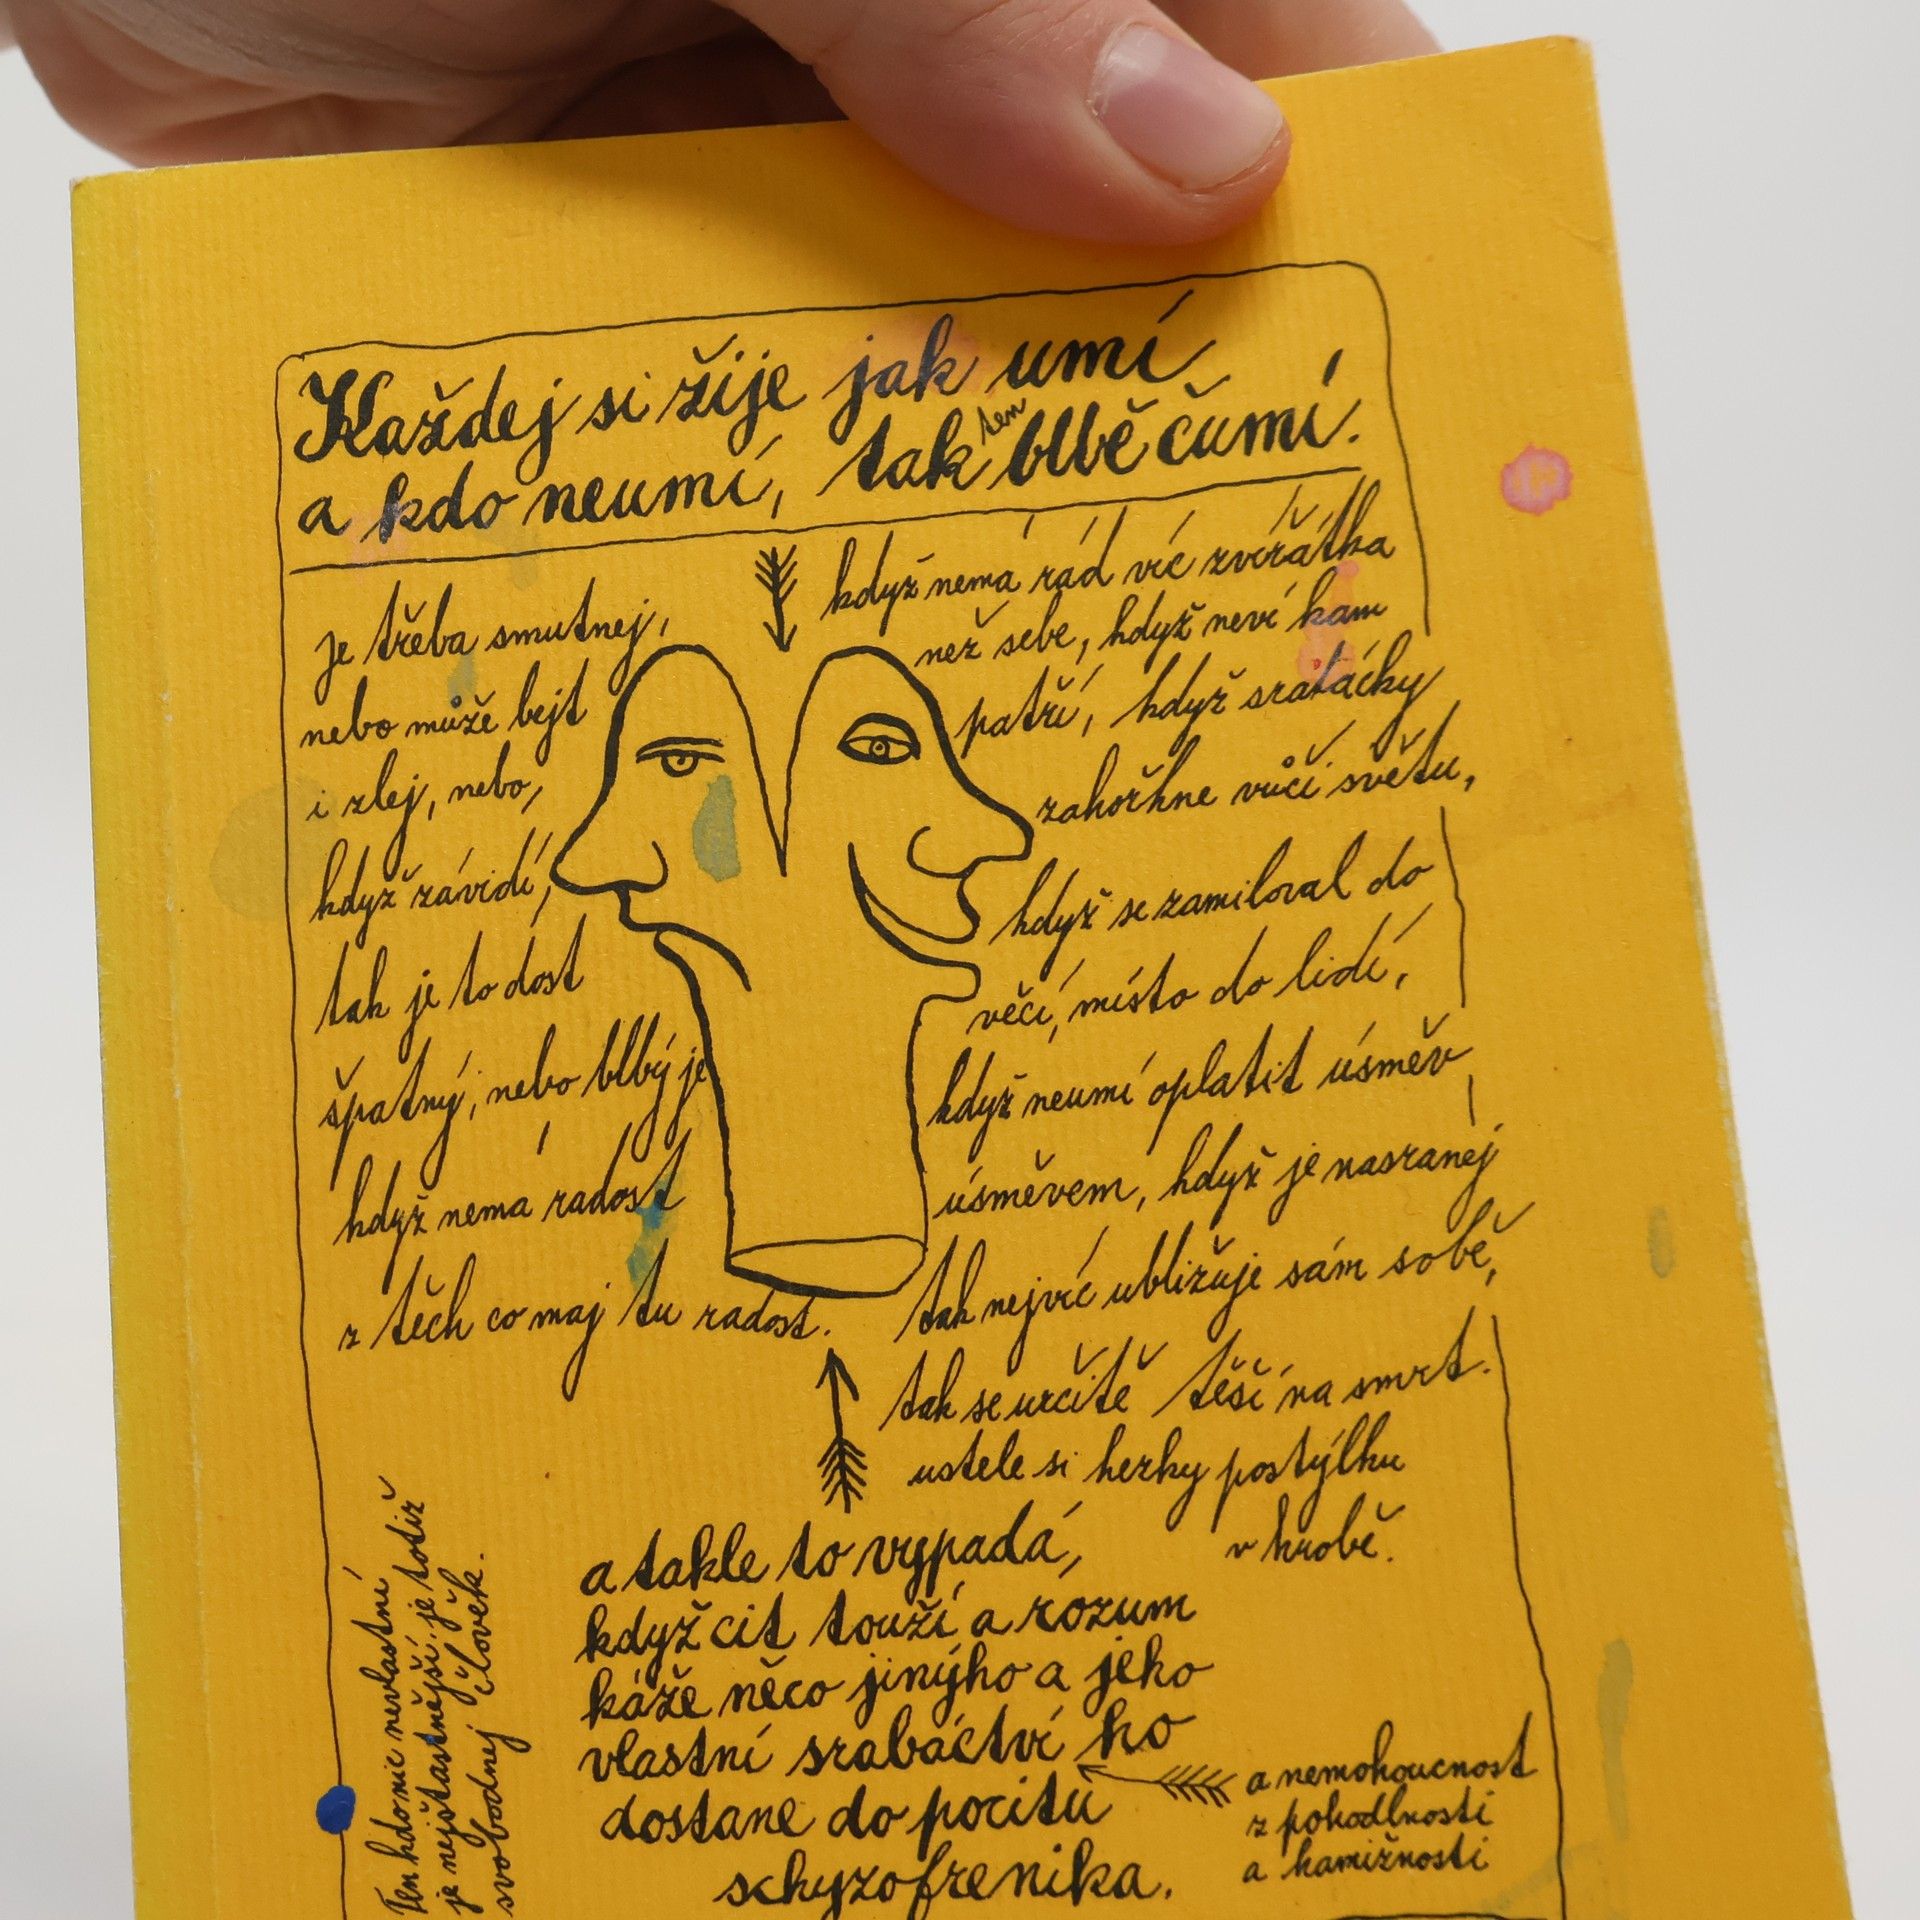 Každej si žije jak umí
a kdo neumí, tak ten blbě čumí.
je třeba smutnej,
nebo může bejt
i zlej, nebo,
když závidí,
tak je to dost
špatný, nebo blbý je
když nemá radost
z těch co maj tu radost.
když nemá rád víc zvířátka
než sebe, když neví kam
patří, když srabácky
zahořkne vůči světu,
když se zamiloval do
věcí, místo do lidí,
když neumí oplatit úsměv
úsměvem, když je nasranej
tak nejvíc ubližuje sám sobě,
tak se určitě těší na smrt.
ustele si hezky postýlku
v hrobě.
a takle to vypadá,
když cit touží a rozum
káže něco jinýho a jeho
vlastní srabáctví ho
dostane do pocitu
schyzofrenika.
a nemohoucnost
z pohodlnosti
a hamižnosti
Ten kdo nic nevlastní
je nejšťastnější, je totiž
svobodnej člověk.